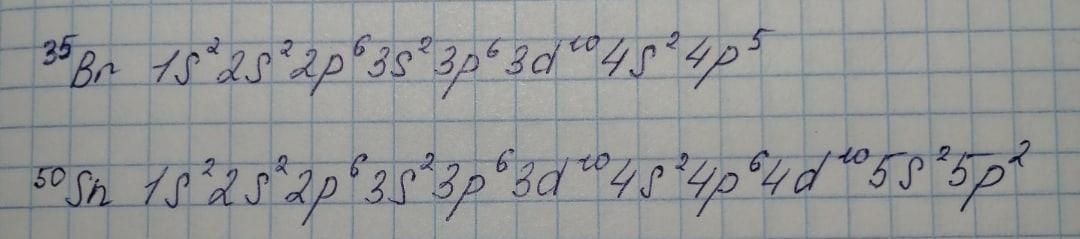 ³⁵Br 1s²2s²2p⁶3s²3p⁶3d¹⁰4s²4p⁵
⁵⁰Sn 1s²2s²2p⁶3s²3p⁶3d¹⁰4s²4p⁶4d¹⁰5s²5p²